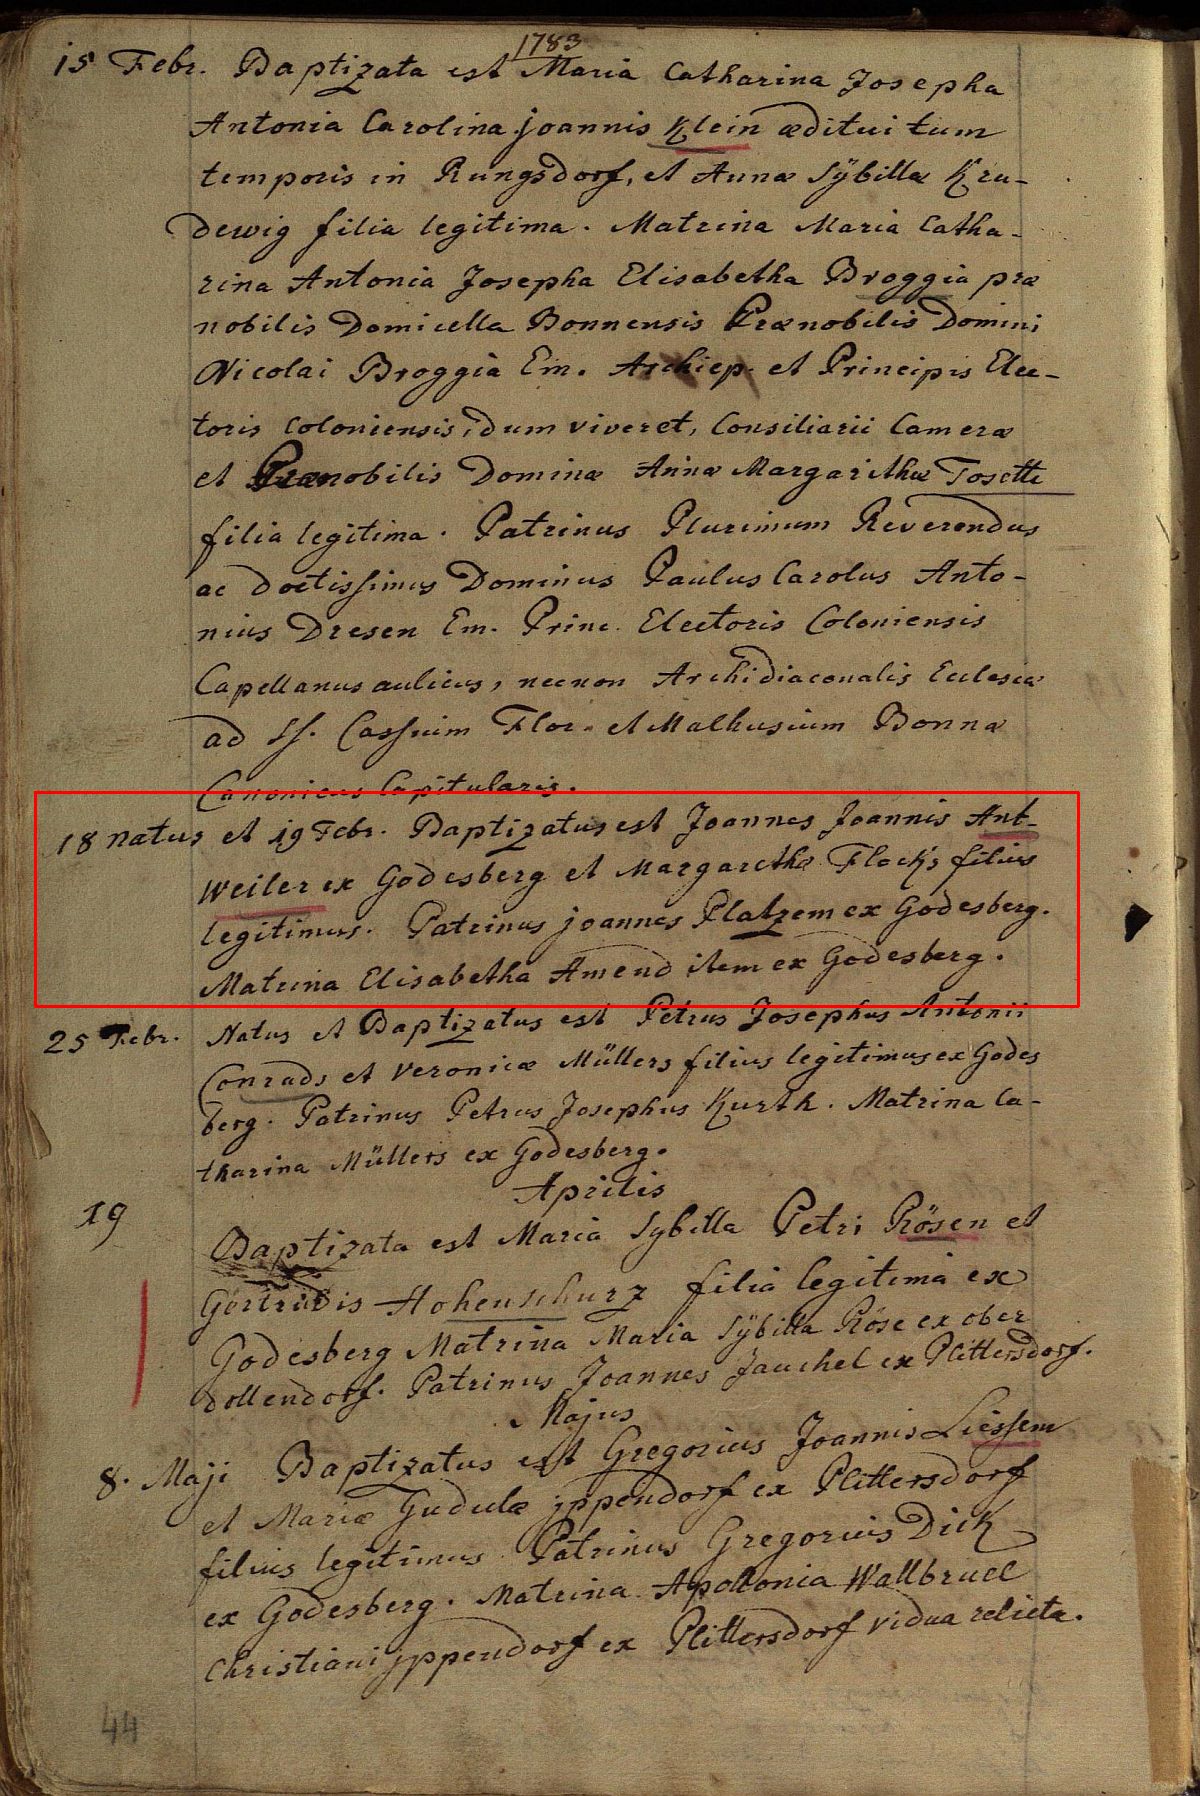 1783
15 Febr. Baptizata est Maria Catharina Josepha
Antonia Carolina joannis Klein æditui tum
temporis in Rungsdorf, et Annæ Sÿbillæ Kru-
dewig filia legitima. Matrina Maria Catha-
rina Antonia Josepha Elisabetha Broggia præ
nobilis Domicella Bonnensis Prænobilis Domini
Nicolai Broggia Em. Archiep. et Principis Elec-
toris Coloniensis, dum viveret, Consiliarii Cameræ
et Prænobilis Dominæ Annæ Margarithæ Tosetti
filia legitima. Patrinus Plurimum Reverendus
ac doctissimus Dominus Paulus Carolus Anto-
nius Dresen Em. Princ. Electoris Coloniensis
Capellanus aulicus, necnon Archidiaconalis Ecclesiæ
ad SS. Cassium Flor. et Malhusium Bonnæ
Canonicus Capitularis.
18 natus et 19 Febr. Baptizatus est Joannes Joannis Ant-
weiler ex Godesberg et Margarethæ Flock's filius
legitimus. Patrinus joannes Platzem ex Godesberg.
Matrina Elisabetha Amend item ex Godesberg.
25 Febr. Natus et Baptizatus est Petrus Josephus Antonii
Conrads et Veronicæ Müllers filius legitimus ex Godes
berg. Patrinus Petrus Josephus Kurth. Matrina Ca-
tharina Müllers ex Godesberg.
Aprilis
19 Baptizata est Maria Sybilla Petri Rösen et
Gertrudis Hohenschurz filia legitima ex
Godesberg Matrina Maria Sÿbilla Röse ex ober
dollendorf. Patrinus Joannes Jauchel ex Plittersdorf.
Majus
8. Maji Baptizatus est Gregorius Joannis Liessem
et Mariæ Gudulæ jppendorf ex Plittersdorf
filius legitimus Patrinus Gregorius Dick
ex Godesberg. Matrina Apollonia Wallbruel
Christiani jppendorf ex Plittersdorf vidua relicta.
44